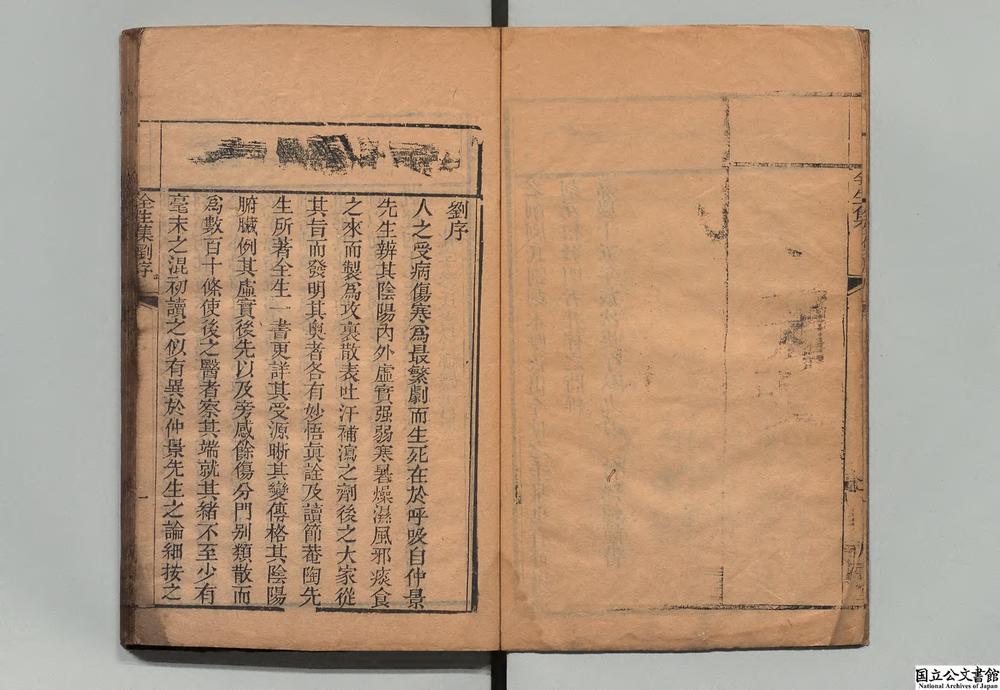 劉序
人之受病傷寒爲最繁劇而生死在於呼吸自仲景
先生辨其陰陽內外虛實强弱寒暑燥濕風邪痰食
之來而製爲攻裏散表吐汗補瀉之劑後之大家從
其旨而發明其奧者各有妙悟眞詮及讀節菴陶先
生所著全生一書更詳其受源晰其變傳格其陰陽
腑臟例其虛實後先以及旁感餘傷分門别類散而
爲數百十條使後之醫者察其端就其緒不至少有
毫末之混初讀之似有異於仲景先生之論細按之
全生集劉序
一
国立公文書館
National Archives of Japan